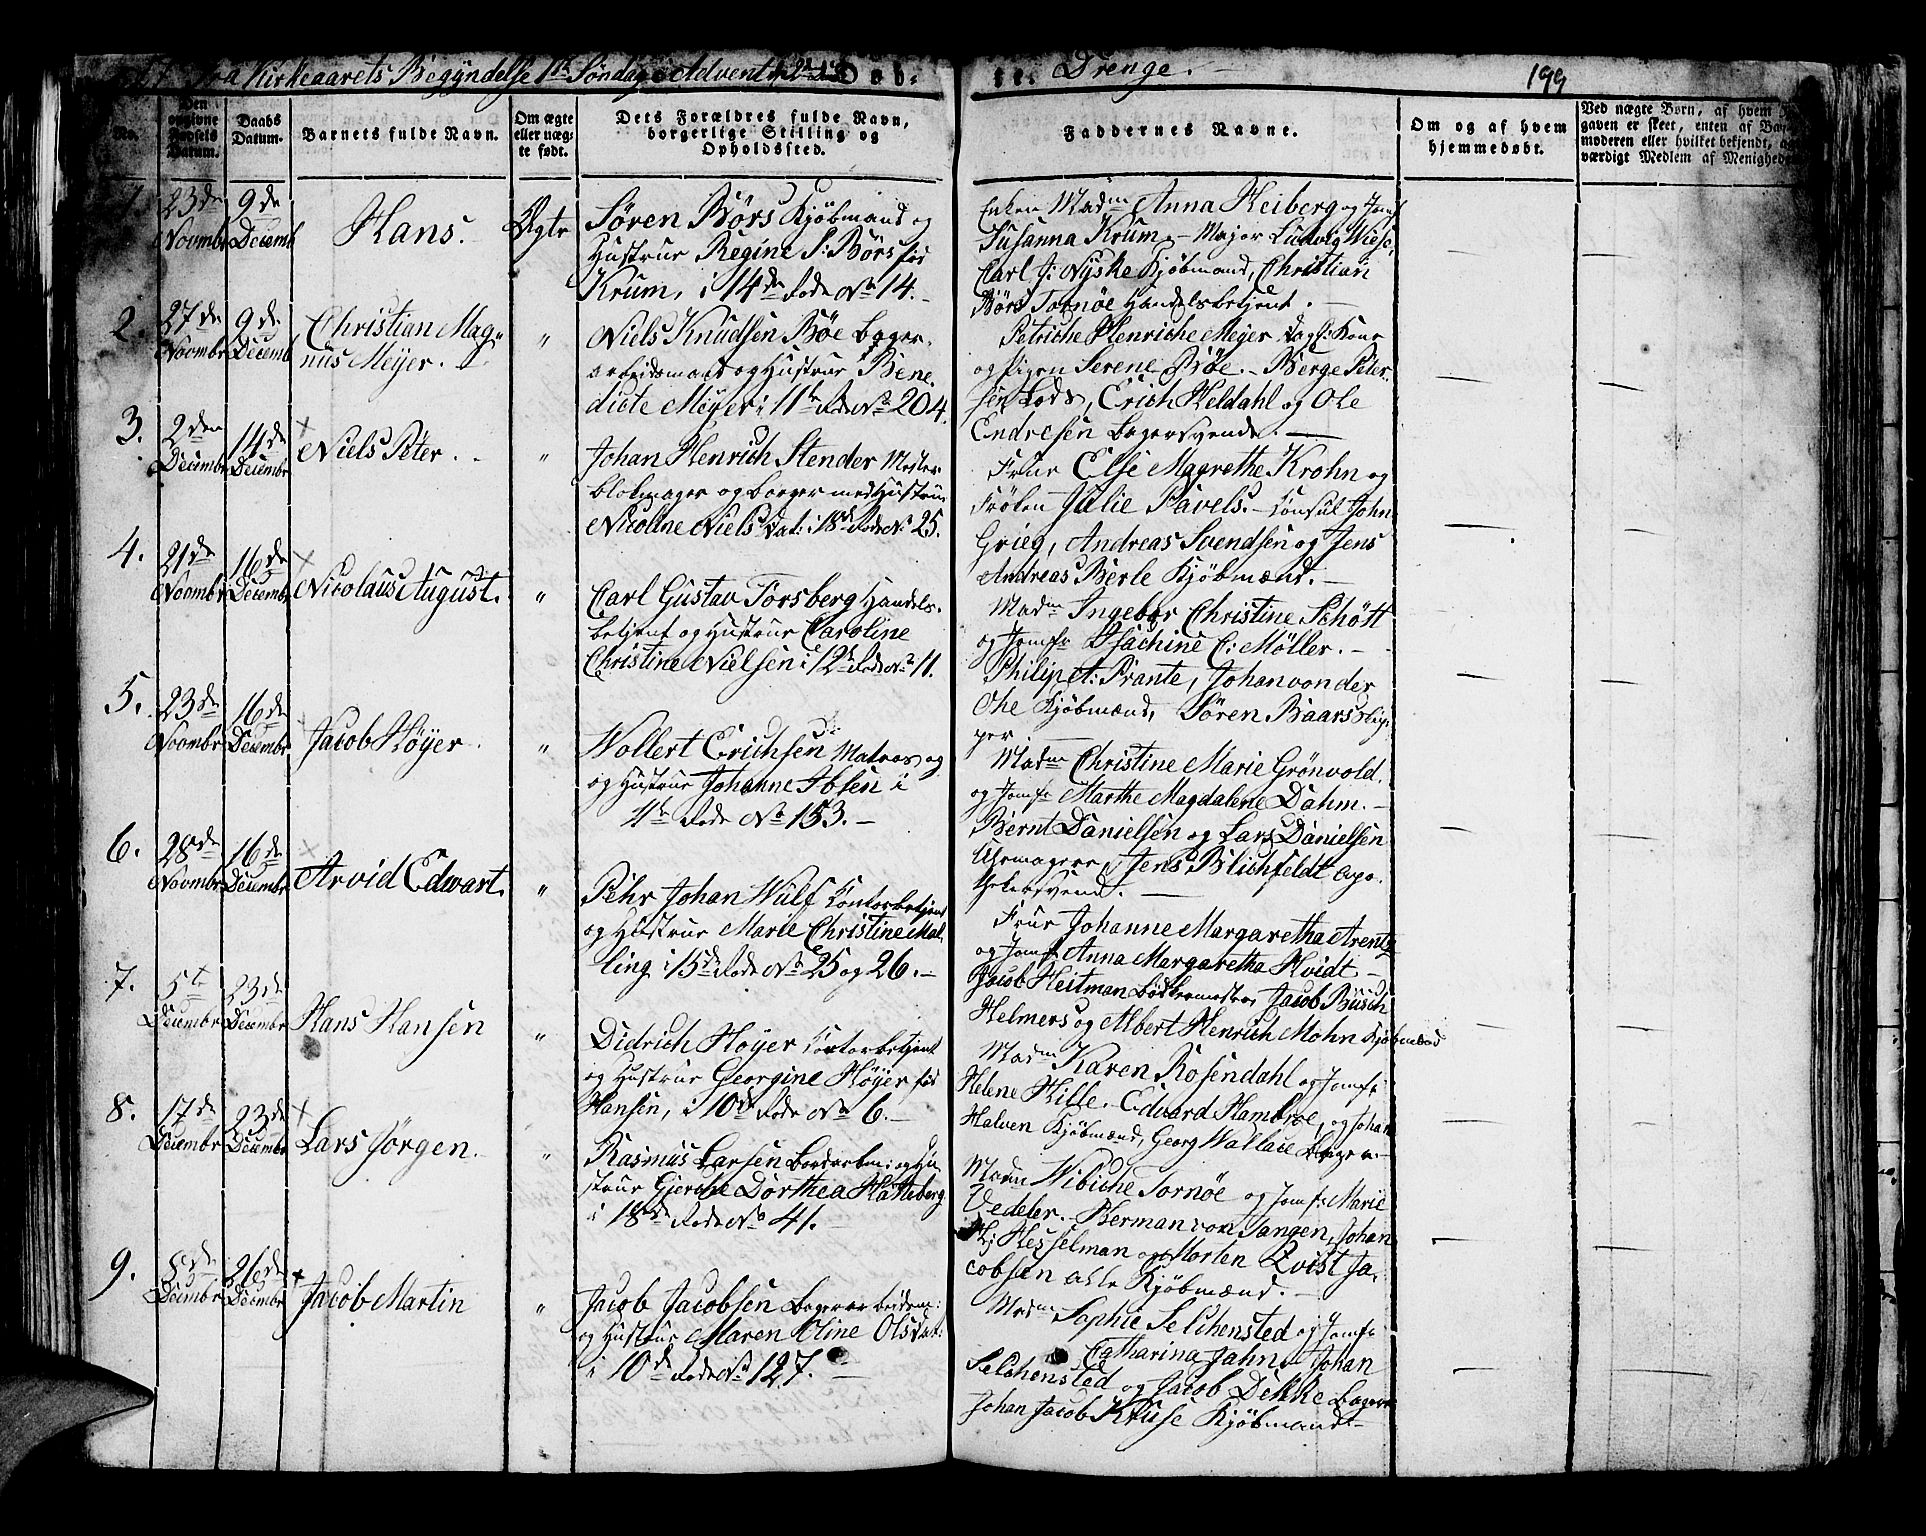 fra Kirkeaarets Begÿndelse 1ste Søndag i Advent Døb-
te. Drenge.
199
No.
Den opgivne Fødsels Datum.
Daabs Datum.
Barnets fulde Navn.
Om ægte eller uægte født.
Dets Forældres fulde Navn, borgerlige Stilling og Opholdssted.
Faddernes Navne.
Om og af hvem hjemmedøbt.
Ved uægte Børn, af hvem
gaven er skeet, enten af Ba
moderen eller hvilket bekjendt,
værdigt Medlem af Menighede
1.
23de Novmbr
9de Decemb
Hans.
Ægte
Søren Börs Kjøbmand og
Hustrue Regine S: Börs fød
Krum, i 14de Rode No 14.
Enken Madm Anna Heiberg og Jomf
Susanna Krum, - Major Ludvig Wiese,
Carl J: Nÿske Kjøbmand, Christian
Börs Tornöe Handelsbetjent.
2.
27de Novmbr
9de Decemb
Christian Mag-
nus Meÿer.
"
Niels Knudsen Böe bager-
arbeidsmand og Hustrue Bene-
dicte Meÿer i 11te Rode No 204.
Petriche Henriche Meÿer Dagf: Kone
og Pigen Serene Böe. - Berge Peter-
sen Lods, Erich Heldahl og Ole
Endresen bagersvende.
3.
2den Decembr
14de Decembr
Niels Peter.
"
Johan Henrich Stender Mester
blokmager og borger med Hustrue
Nicoline Niels Dat: i 18de Rode No 25.
Frue Else Magrethe Krohn og
Frøken Julie Pavels. - Consul John
Grieg, Andreas Svendsen og Jens
Andreas Berle Kjøbmænd.
4.
21de Novmbr
16de Decembr
Nicolaus August.
"
Carl Gustav Torsberg Handels-
betjent og Hustrue Caroline
Christine Nielsen i 12te Rode No 11.
Madm Ingebor Christine Schött
og Jomfr Isachine C: Möller.
Philip A: Prante, Johan von der
Ohe Kjøbmænd, Sören Baars
per
5.
23de Novmbr
16de Decembr
Jacob Höÿer.
"
Wollert Erichsen Matros og
og Hustrue Johanne Ibsen i
Rode No 153.
Madm Christine Marie Grönvold
og Jomfr Marthe Magdalene Dahm.
Bernt Danielsen og Lars Danielsen
Uhrmagere, Jens Blichfeldt apo-
thekersvend.
6.
28de Novmbr
16de Decembr
Arvid Edvart.
"
Pehr Johan Wulf Contorbetjent
og Hustrue Marie Christine Mal-
ling i 15de Rode No 25 og 26.
Frue Johanne Margaretha Arentz
og Jomfr Anna Margaretha Hvidt -
Jacob Heitman bødkermester, Jacob Büsch
Helmers og Albert Henrich Mohn Kjøbmænd
7.
5te Decembr
23de Decembr
Hans Hansen
"
Didrich Höÿer Contorbetjent
og Hustrue Georgine Höÿer fød
Hansen, i 10de Rode No 6.
Madm Karen Rosendahl og Jomfr
Helene Hille. Edvard Hambroe, og Johan
Halven Kjøbmænd, Georg Wallace
8.
17de Decembr
23de Decembr
Lars Jörgen.
"
Rasmus Larsen bordarbm: og Hu
strue Gjerche Dorthea Hatleberg
i 18de Rode No 41.
Madm Wibiche Tornöe og Jomfr Marie
Vedeler. Herman von Tangen, Johan
H: Hesselman og Morten Qvist Ja-
cobsen alle Kjøbmænd.
9.
8de Decembr
26de Decembr
Jacob Martin
"
Jacob Jacobsen bagerarbeidsm:
og Hustrue Maren Oline Olsdat:
i 10de Rode No 127.
Madm Sophie Selchensted og Jomfr
Catharina Jahn - Johan
Selchensted og Jacob Dekke bagere
Johan Jacob Kruse Kjøbmand